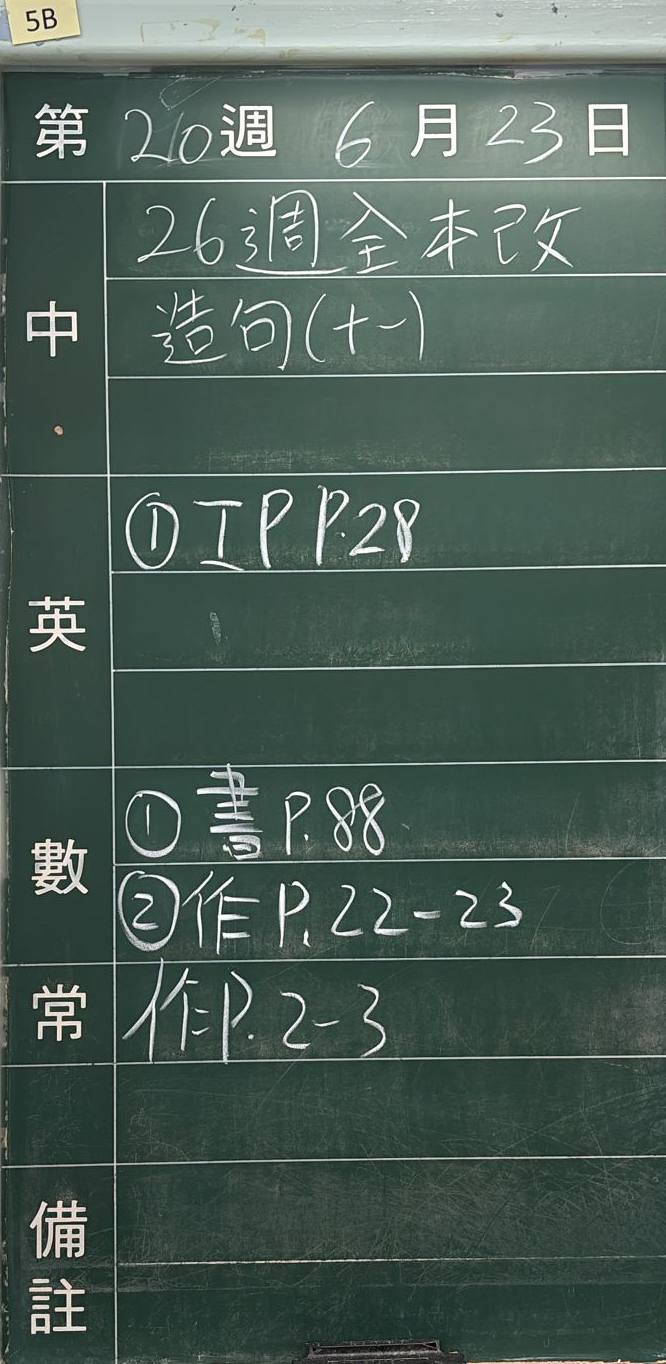 5B
第 20 週 6 月 23 日
中
26週全本改
造句(十一)
英
① IP P.28
數
① 書 P.88
② 作 P.22-23
常
作P.2-3
備註